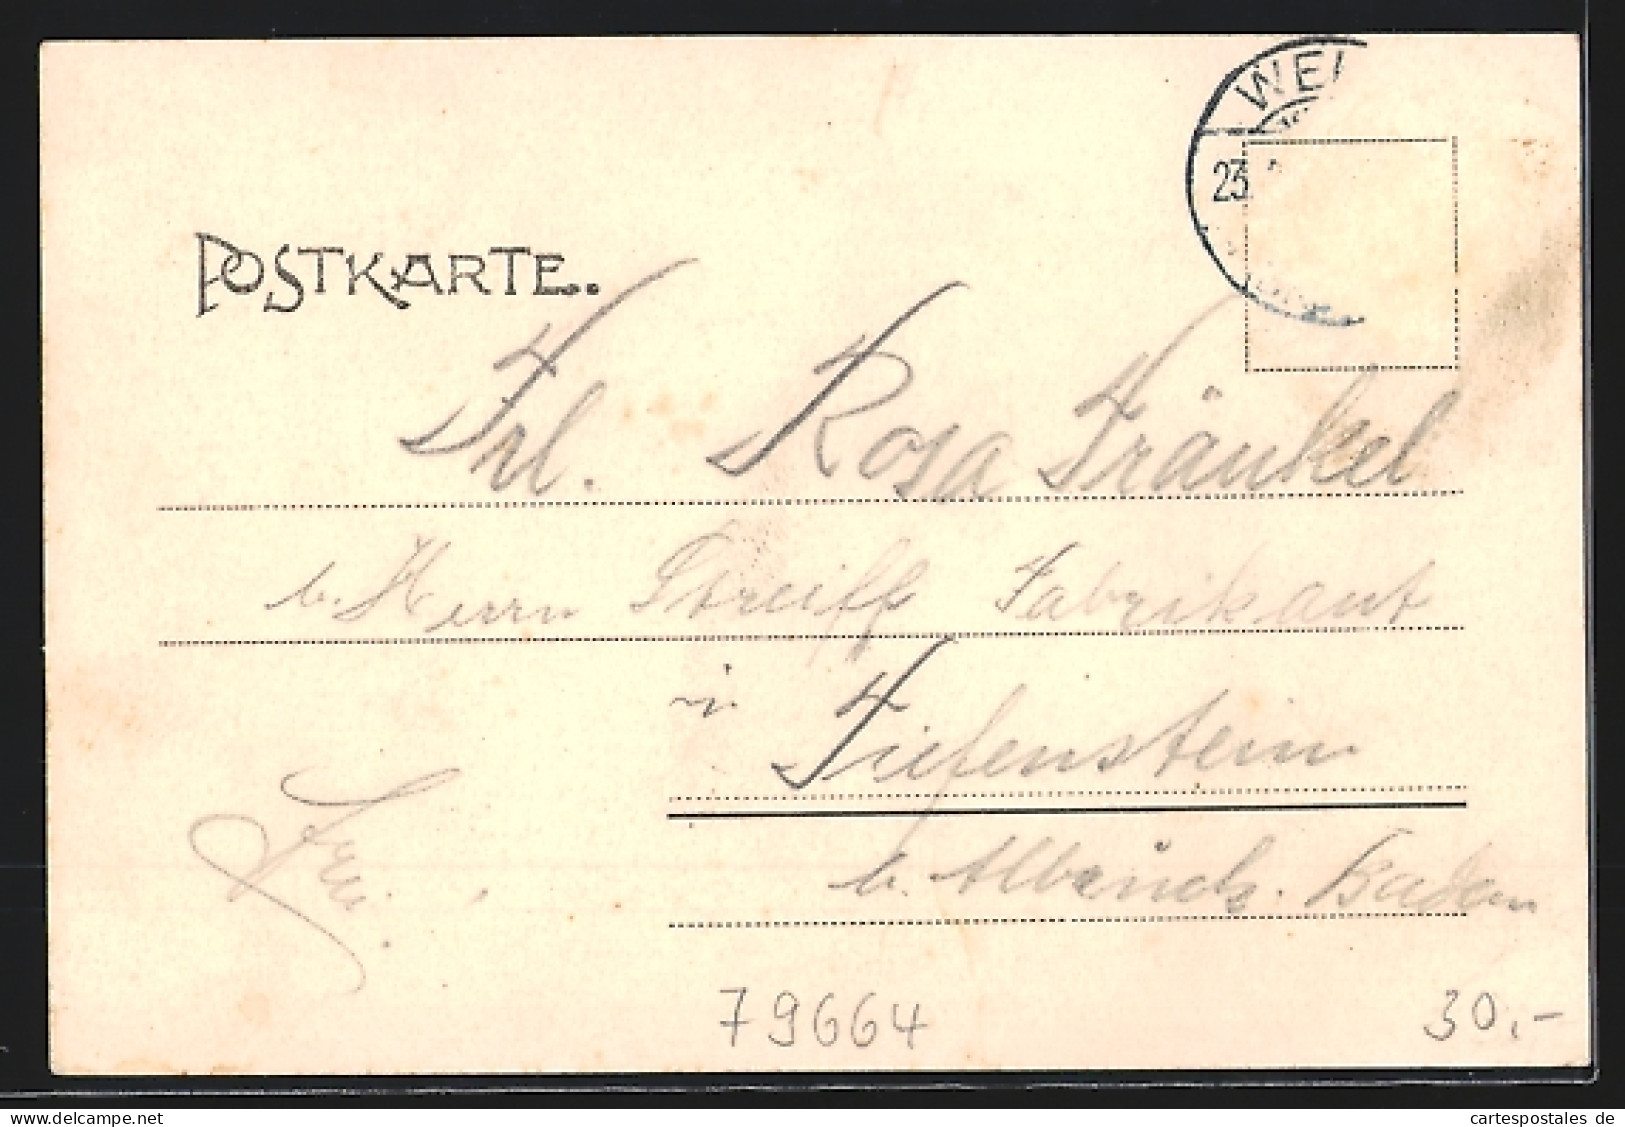 WEI
23.
POSTKARTE.
Frl. Rosa Fränkel
b. Herrn Streiff Fabrikant
in Tiefenstein
b. Albbruck. Baden
79664
30.-
cartespostales de